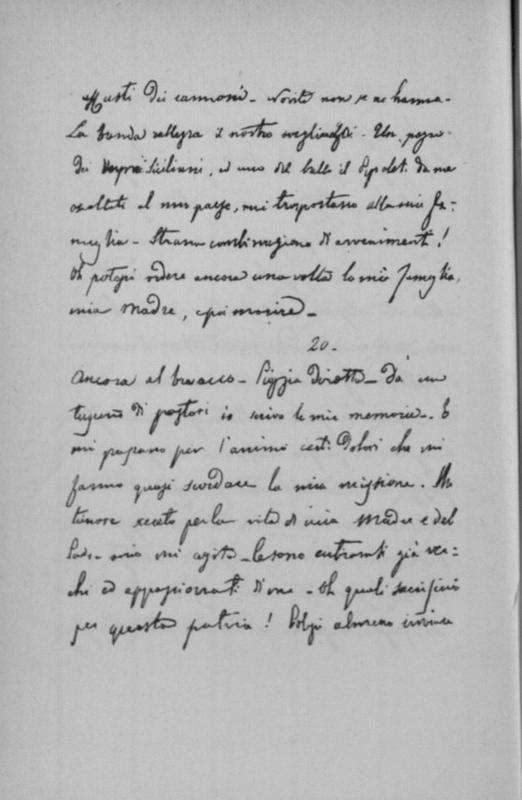 dei cannoni - Novità non se ne hanno -
La banda rallegra il nostro Un pezzo
dei Vespri Siciliani, ed uno del ballo il da me
al mio paese, mi trasportano alla mia fa-
miglia - Strana combinazione di avvenimenti!
Oh potessi vedere ancora una volta la mia famiglia,
mia Madre, e poi morire -
20 -
Ancora al bivacco - Pioggia dirotta - Da un
tugurio di pastori io scrivo le mie memorie - E
mi passano per l'animo certi dolori che mi
fanno quasi scordare la mia missione. Un
timore per la vita di mia Madre e del
Padre mio mi agita - Essono entrambi già vec-
chi ed appassionati di me - Oh quali sacrifici
per questa patria! almeno